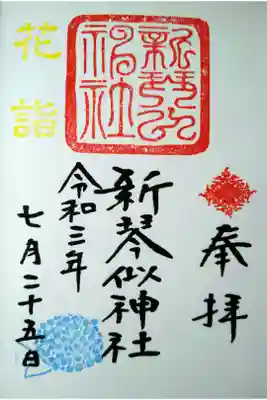 奉拝
新琴似神社
令和三年
七月二十五日
花詣
新琴似
神社